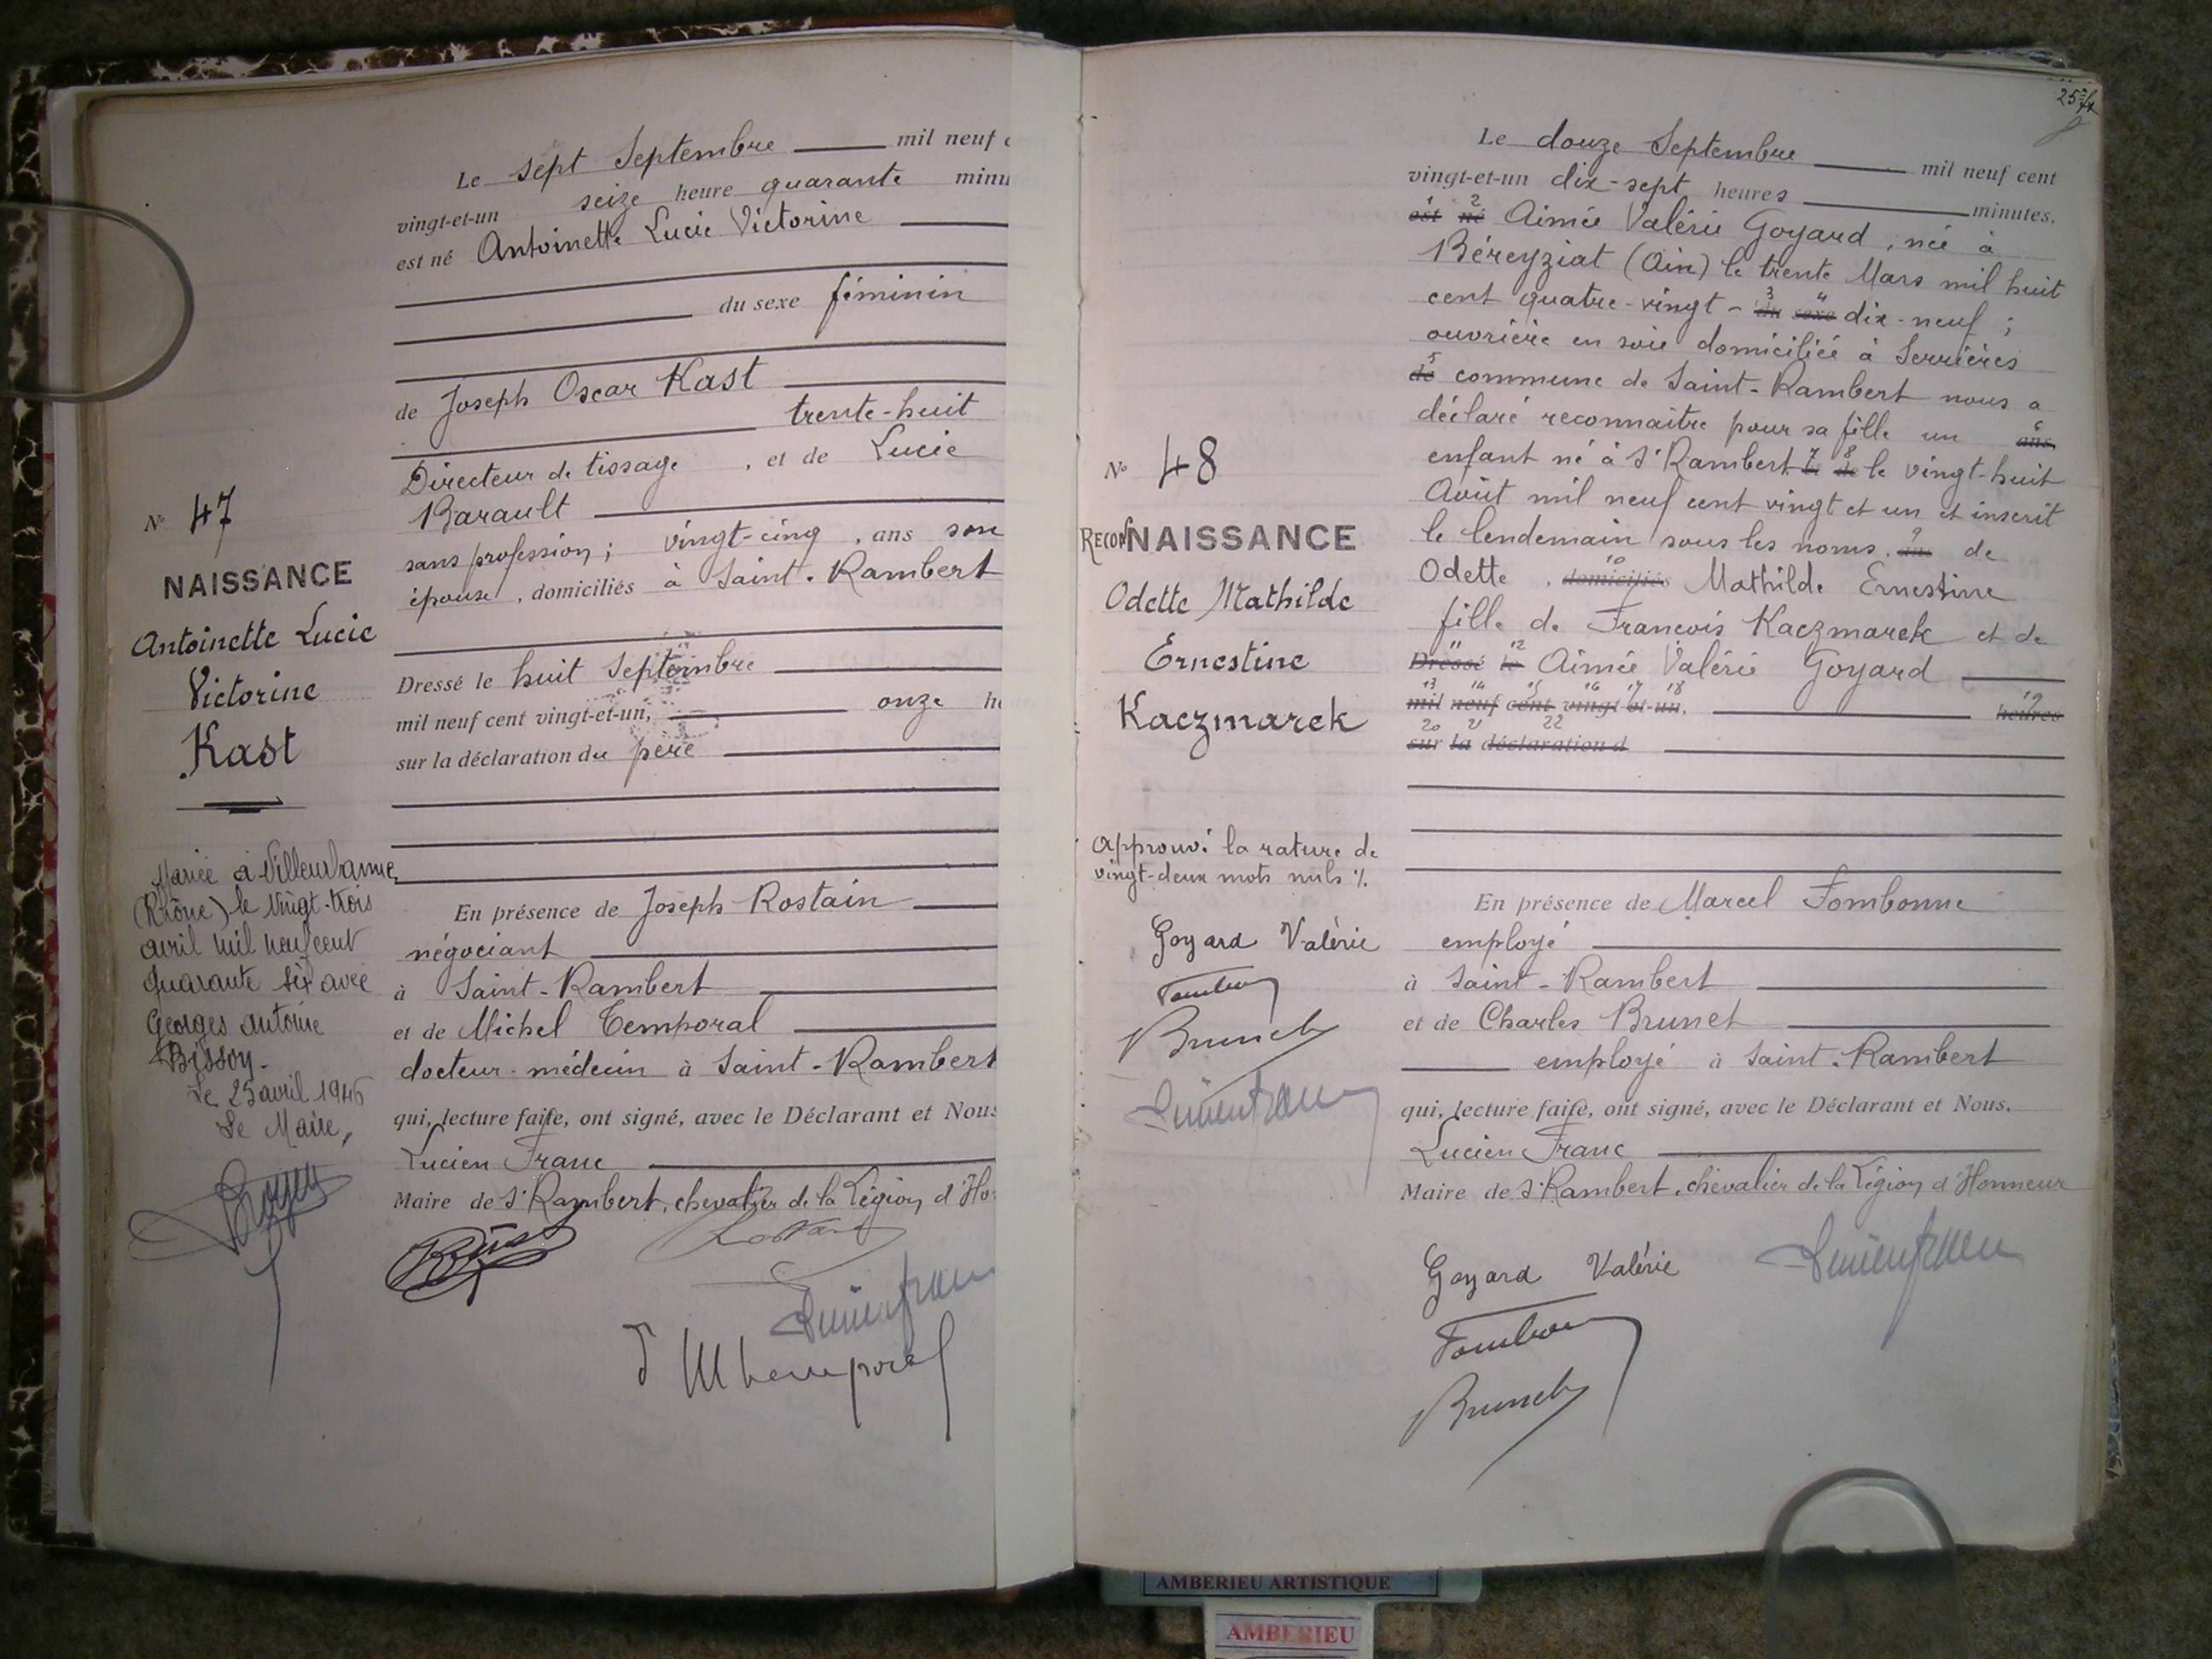 Le sept Septembre mil neuf
vingt-et-un seize heure quarante minu
est né Antoinette Lucie Victorine
du sexe féminin
de Joseph Oscar Kast
trente-huit
Directeur de tissage, et de Lucie
Barault
sans profession; vingt-cinq, ans son
épouse, domiciliés à Saint-Rambert
Dressé le huit Septembre
mil neuf cent vingt-et-un, onze he
sur la déclaration du père
En présence de Joseph Rostain
négociant
à Saint-Rambert
et de Michel Temporal
docteur-médecin à Saint-Rambert
qui, lecture faite, ont signé, avec le Déclarant et Nous
Lucien Franc
Maire de St Rambert, chevalier de la Légion d'Ho
N° 47
NAISSANCE
Antoinette Lucie
Victorine
Kast
Mariée à Villeurbanne
(Rhône) le vingt-trois
avril mil neuf cent
quarante six avec
Georges Antoine
Bissoy.
Le 25 avril 1946
Le Maire,
25
Le douze Septembre mil neuf cent
vingt-et-un dix-sept heures minutes.
1 2
est né Aimée Valérie Goyard, née à
Béreyziat (Ain) le trente Mars mil huit
3 4
cent quatre-vingt-du sexe dix-neuf;
ouvrière en soie domiciliée à Serrières
5
de commune de Saint-Rambert nous a
6
déclaré reconnaître pour sa fille un ans
7 8
enfant né à St Rambert le vingt-huit
Août mil neuf cent vingt et un et inscrit
9
le lendemain sous les noms, ans de
10
Odette, domiciliés Mathilde Ernestine
fille de François Kaczmarek et de
11 12
Dressé le Aimée Valérie Goyard
13 14 15 16 17 18 19
mil neuf cent vingt-et-un, heures
20 21 22
sur la déclaration d
En présence de Marcel Fombonne
employé
à Saint-Rambert
et de Charles Brunet
employé à Saint-Rambert
qui, lecture faite, ont signé, avec le Déclarant et Nous.
Lucien Franc
Maire de St Rambert, chevalier de la Légion d'Honneur
Goyard Valérie
Brunet
N° 48
RECONNAISSANCE
Odette Mathilde
Ernestine
Kaczmarek
Approuvé la rature de
vingt-deux mots nuls %.
Goyard Valérie
Brunet
AMBERIEU ARTISTIQUE
AMBERIEU